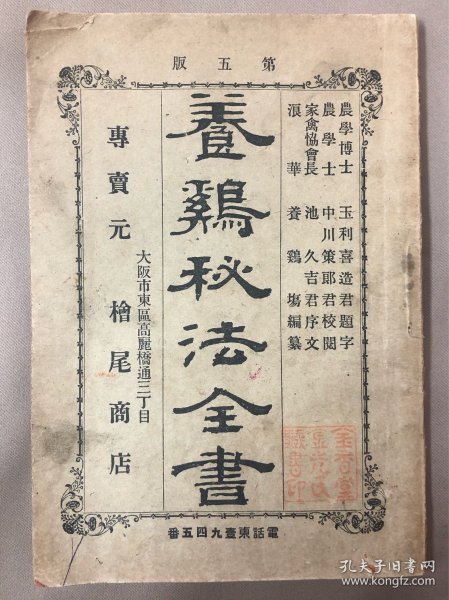 第五版
農學博士 玉利喜造君題字
農學士 中川策郎君校閱
家禽協會長 池久吉君序文
浪華養鷄塲編纂
養鷄秘法全書
大阪市東區高麗橋通三丁目
專賣元 檜尾商店
電話東壹九四五番
孔夫子旧书网
www.kongfz.com